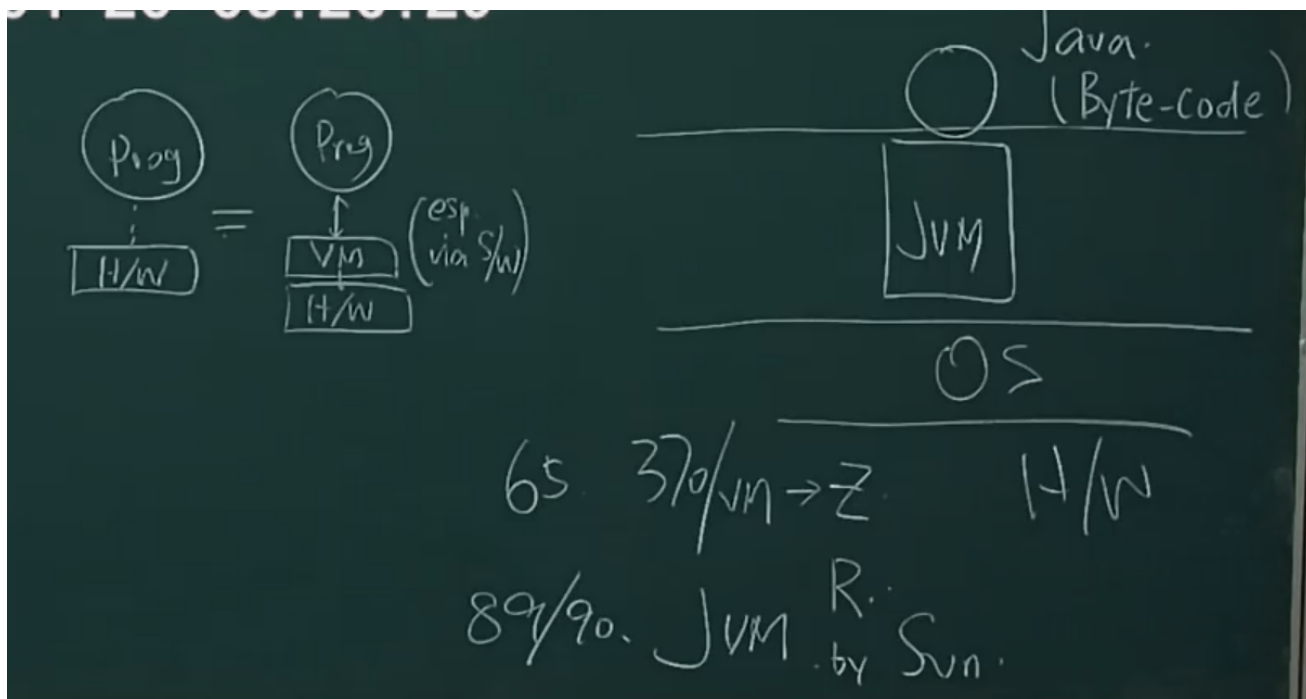 Prog
H/W
=
Prog
VM
H/W
(esp.
via S/W)
Java.
(Byte-code)
JVM
OS
H/W
65. 370/VM → Z.
89/90. JVM R.
by Sun.